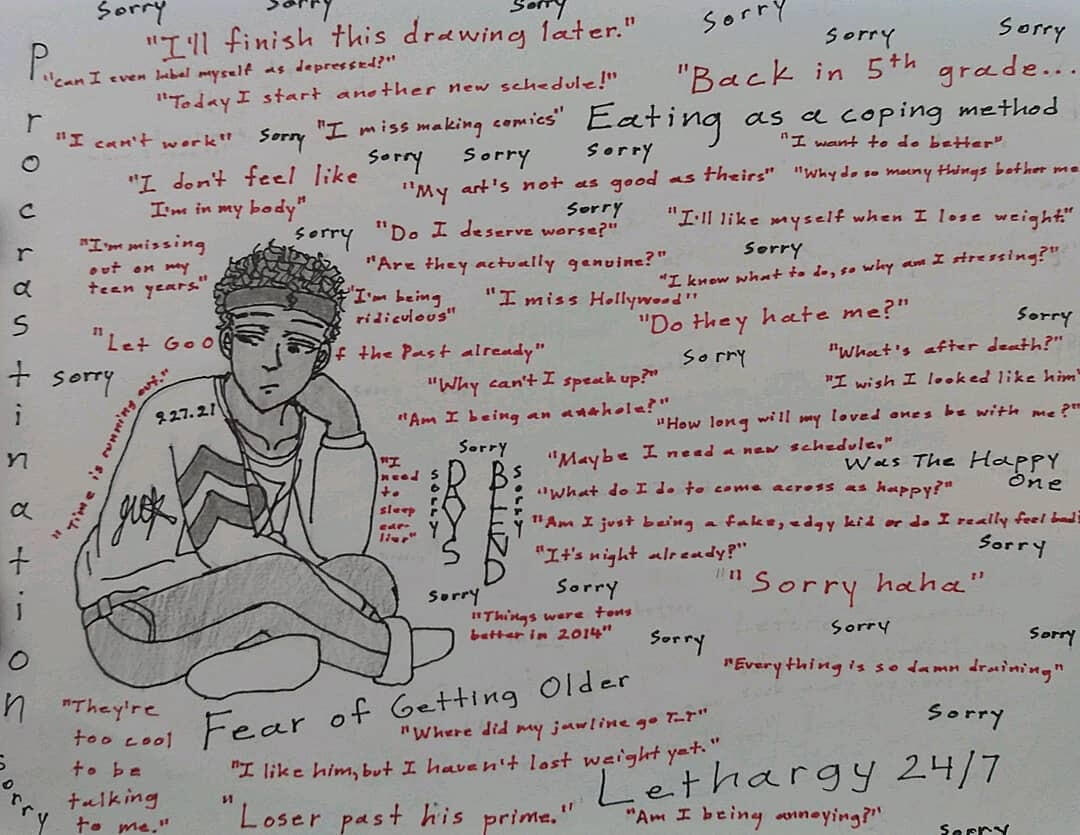 Sorry
Sorry
Sorry
Sorry
Sorry
Sorry
Procrastination
"I'll finish this drawing later."
"Can I even label myself as depressed?"
"Today I start another new schedule!"
"Back in 5th grade...
"I can't work"
Sorry
"I miss making comics"
Eating as a coping method
Sorry
Sorry
Sorry
"I want to do better"
"I don't feel like
I'm in my body"
"My art's not as good as theirs"
"Why do so many things bother me
Sorry
"I'll like myself when I lose weight."
"I'm missing
out on my
teen years."
Sorry
"Do I deserve worse?"
Sorry
"Are they actually genuine?"
"I know what to do, so why am I stressing?"
"I'm being
ridiculous"
"I miss Hollywood"
"Do they hate me?"
Sorry
"Let Goo
f the Past already"
Sorry
"What's after death?"
Sorry
"Time is running out."
"Why can't I speak up?"
"I wish I looked like him"
9.27.21
"Am I being an a**hole?"
"How long will my loved ones be with me?"
Sorry
"Maybe I need a new schedule."
Was The Happy
One
"I
need
to
sleep
ear-
lier"
Sorry
DAYS
BLEND
Sorry
"What do I do to come across as happy?"
"Am I just being a fake, edgy kid or do I really feel bad?
"It's night already?"
Sorry
Sorry
Sorry
"" Sorry haha"
"Things were tons
better in 2014"
Sorry
Sorry
Sorry
"Everything is so damn draining"
"They're
too cool
to be
talking
to me."
Fear of Getting Older
"Where did my jawline go T-T"
Sorry
"I like him, but I haven't lost weight yet."
Lethargy 24/7
Sorry
"Loser past his prime."
"Am I being annoying?"
Sorry